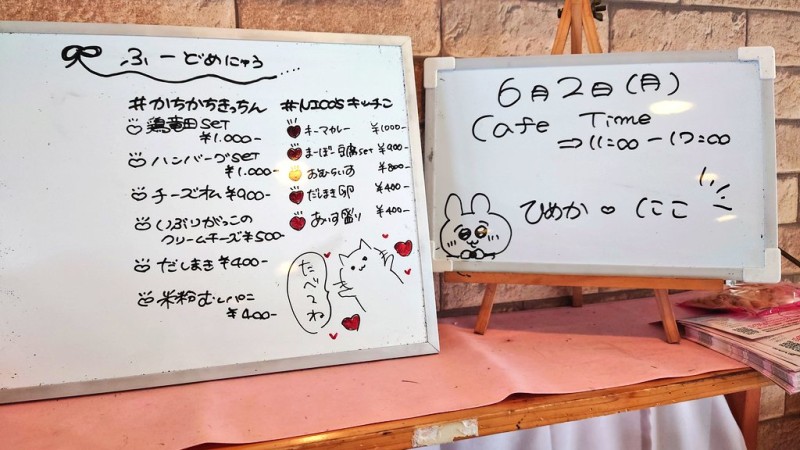 ふーどめにゅう
#かちかちきっちん
鶏竜田SET
¥1.000-
ハンバーグSET
¥1.000-
チーズオム ¥900-
いぶりがっこの
クリームチーズ ¥500-
だしまき ¥400-
米粉むしパン
¥400-
#NICO'Sキッチン
キーマカレー ¥1000-
まーぼー豆腐set ¥900-
おむらいす ¥800-
だしまき卵 ¥400-
あいす盛り ¥400-
たべてね
6月2日(月)
Cafe Time
⇒11:00-17:00
ひめか♡にこ